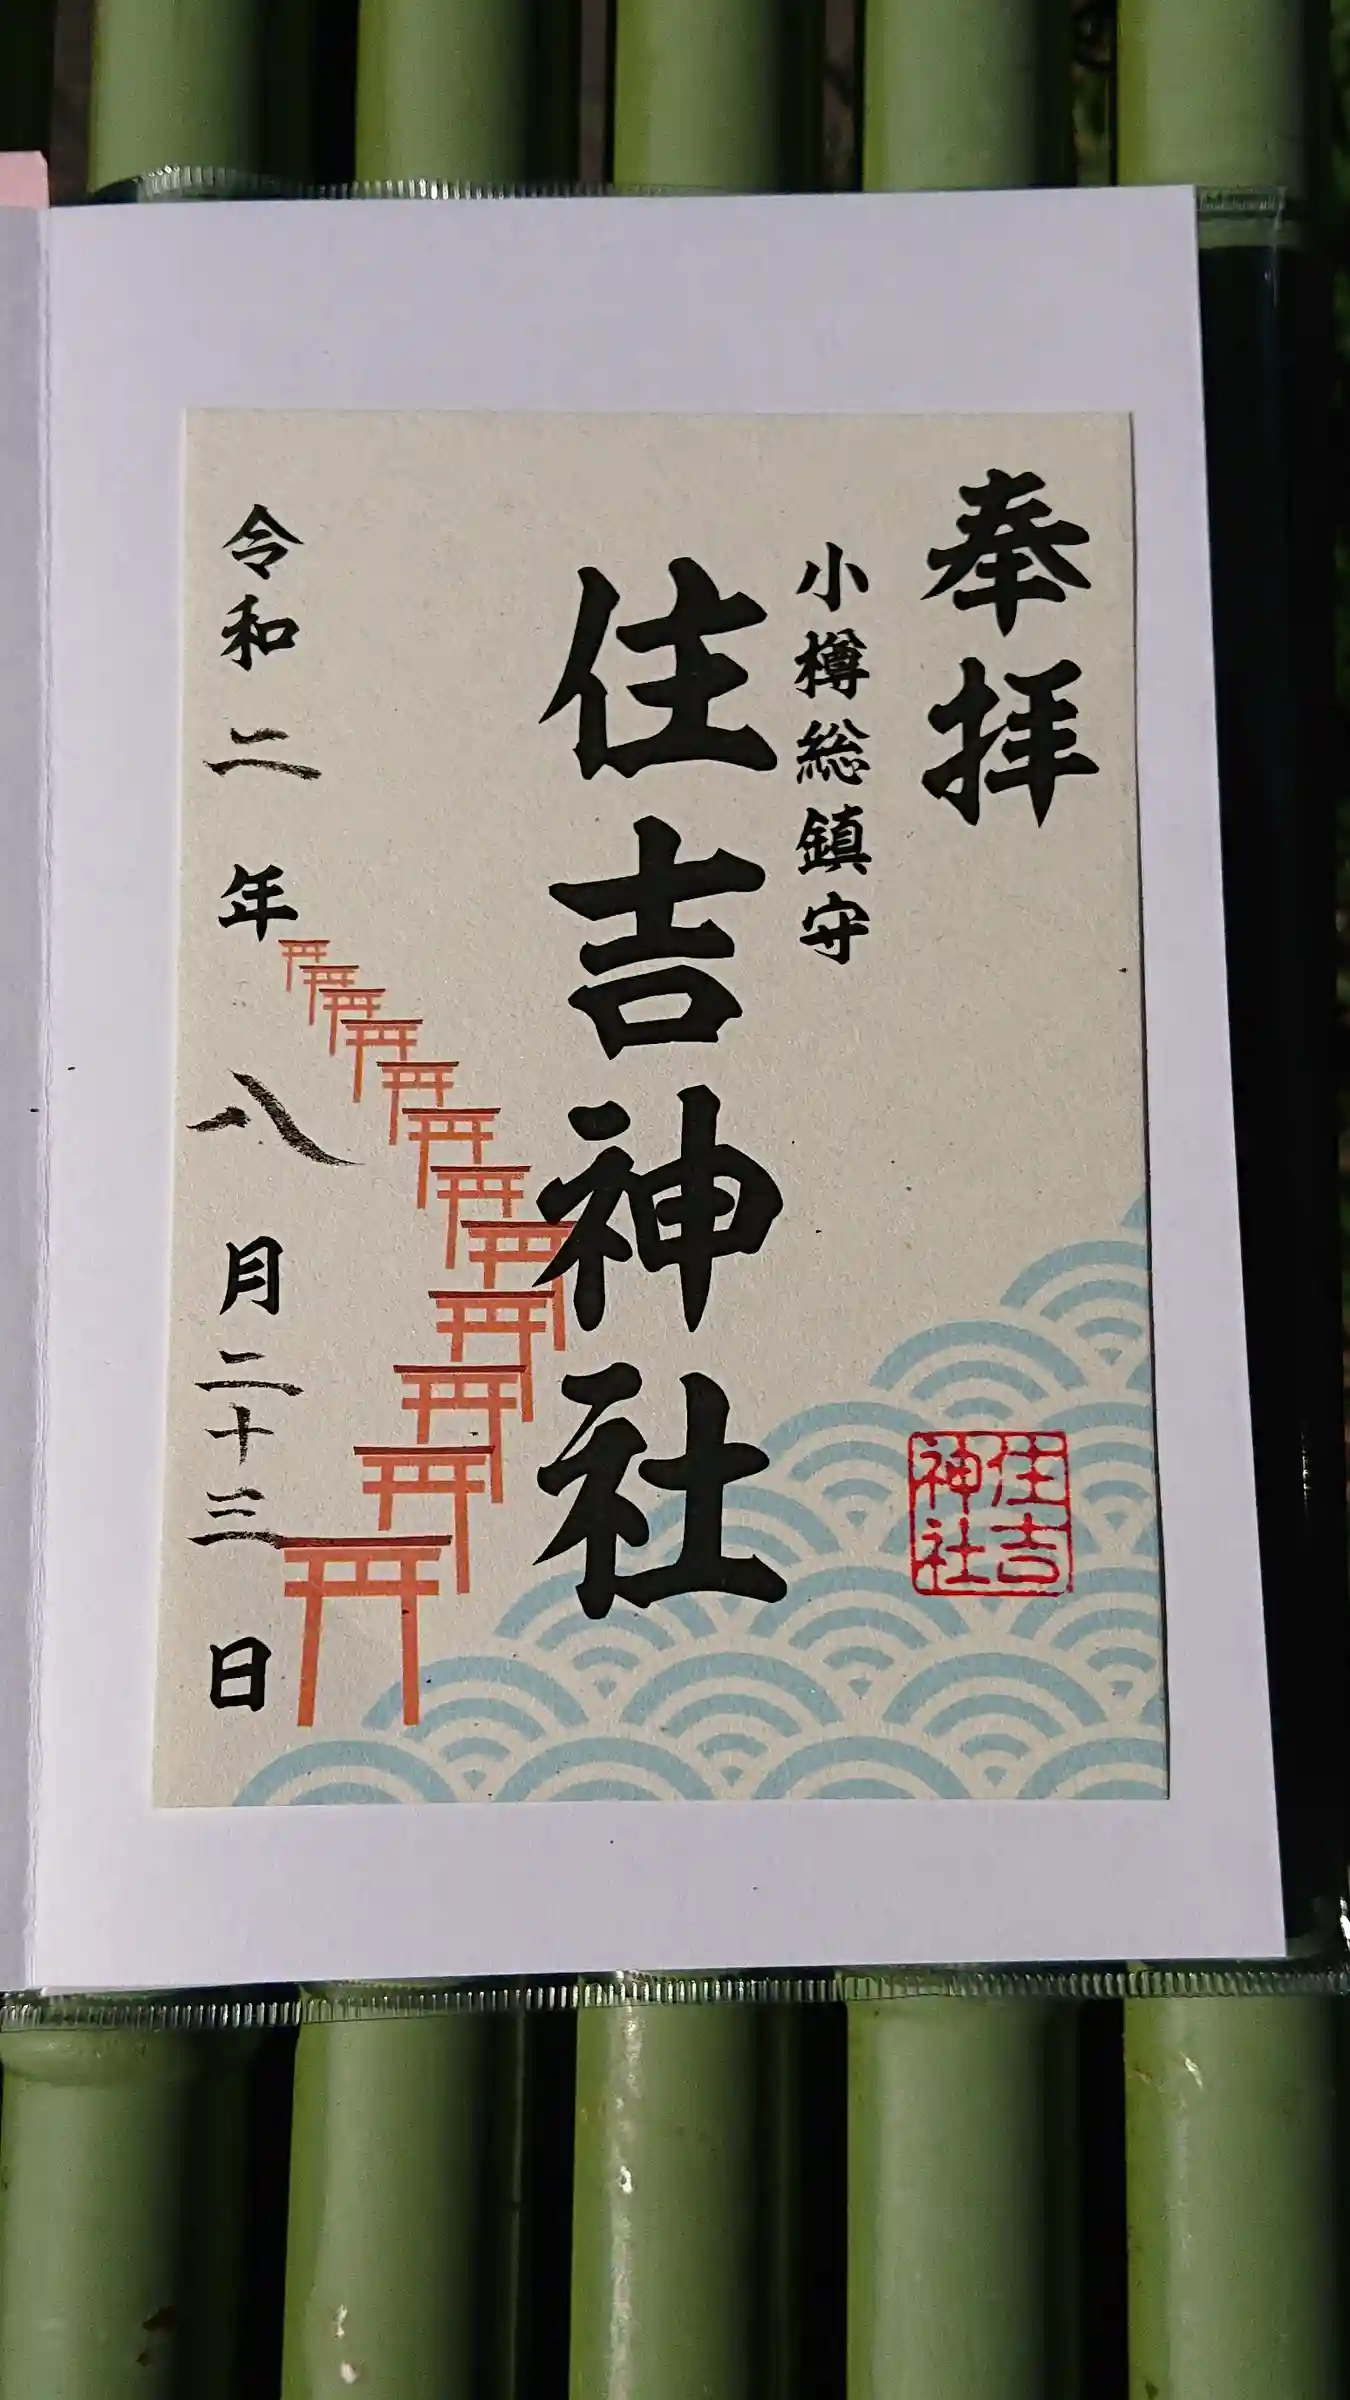 奉拝
小樽総鎮守
住吉神社
住吉神社
令和二年八月二十三日